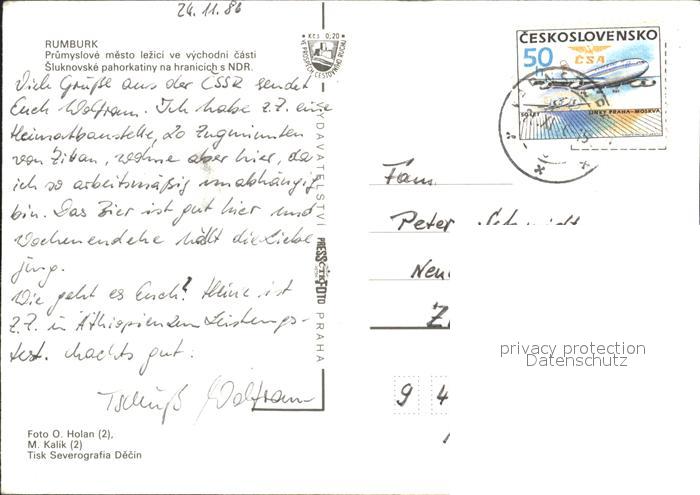 24.11.86
RUMBURK
Průmyslové město ležící ve východní části
Šluknovské pahorkatiny na hranicích s NDR.
Kčs 0,20
VE PROSPĚCH CESTOVNÍHO RUCHU
ČESKOSLOVENSKO
50
ČSA
LINKY PRAHA-MOSKVA
Viele Grüße aus der ČSSR sendet
Euch Wolfram. Ich habe z.Z. eine
Heimatbaustelle, 20 Zugminuten
von Zittau, wohne aber hier, da
ich so arbeitsmäßig unabhängig
bin. Das Bier ist gut hier und
Wochenendehe hält die Liebe
jung.
Wie geht es Euch? Heinz ist
z.Z. in Äthiopien zum Leistungs-
test. Machts gut.
Tschüß Wolfram
VYDAVATELSTVÍ PRESSFOTO PRAHA
Fam.
Peter
9 4
privacy protection
Datenschutz
Foto O. Holan (2),
M. Kalík (2)
Tisk Severografia Děčín